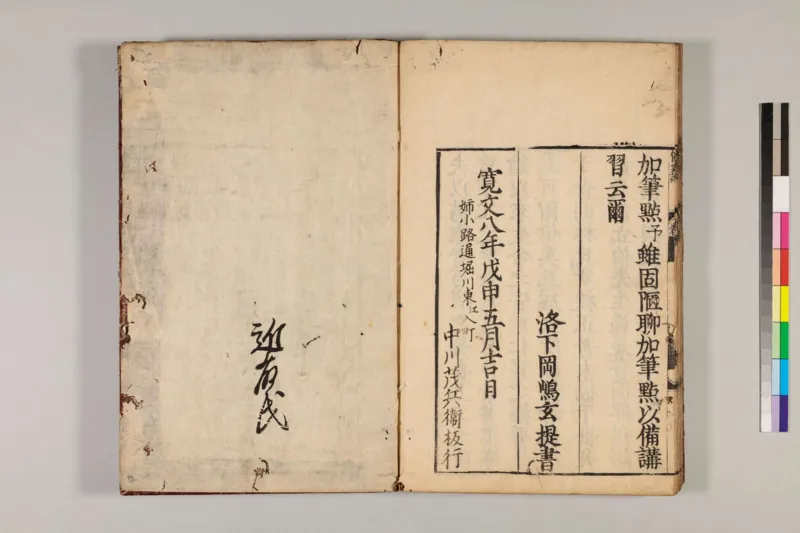 加筆點予雖固陋聊加筆點以備講
習云爾
洛下岡嶋玄提書
寛文八年戊申五月吉日
姉小路通堀川東江入町
中川茂兵衞板行